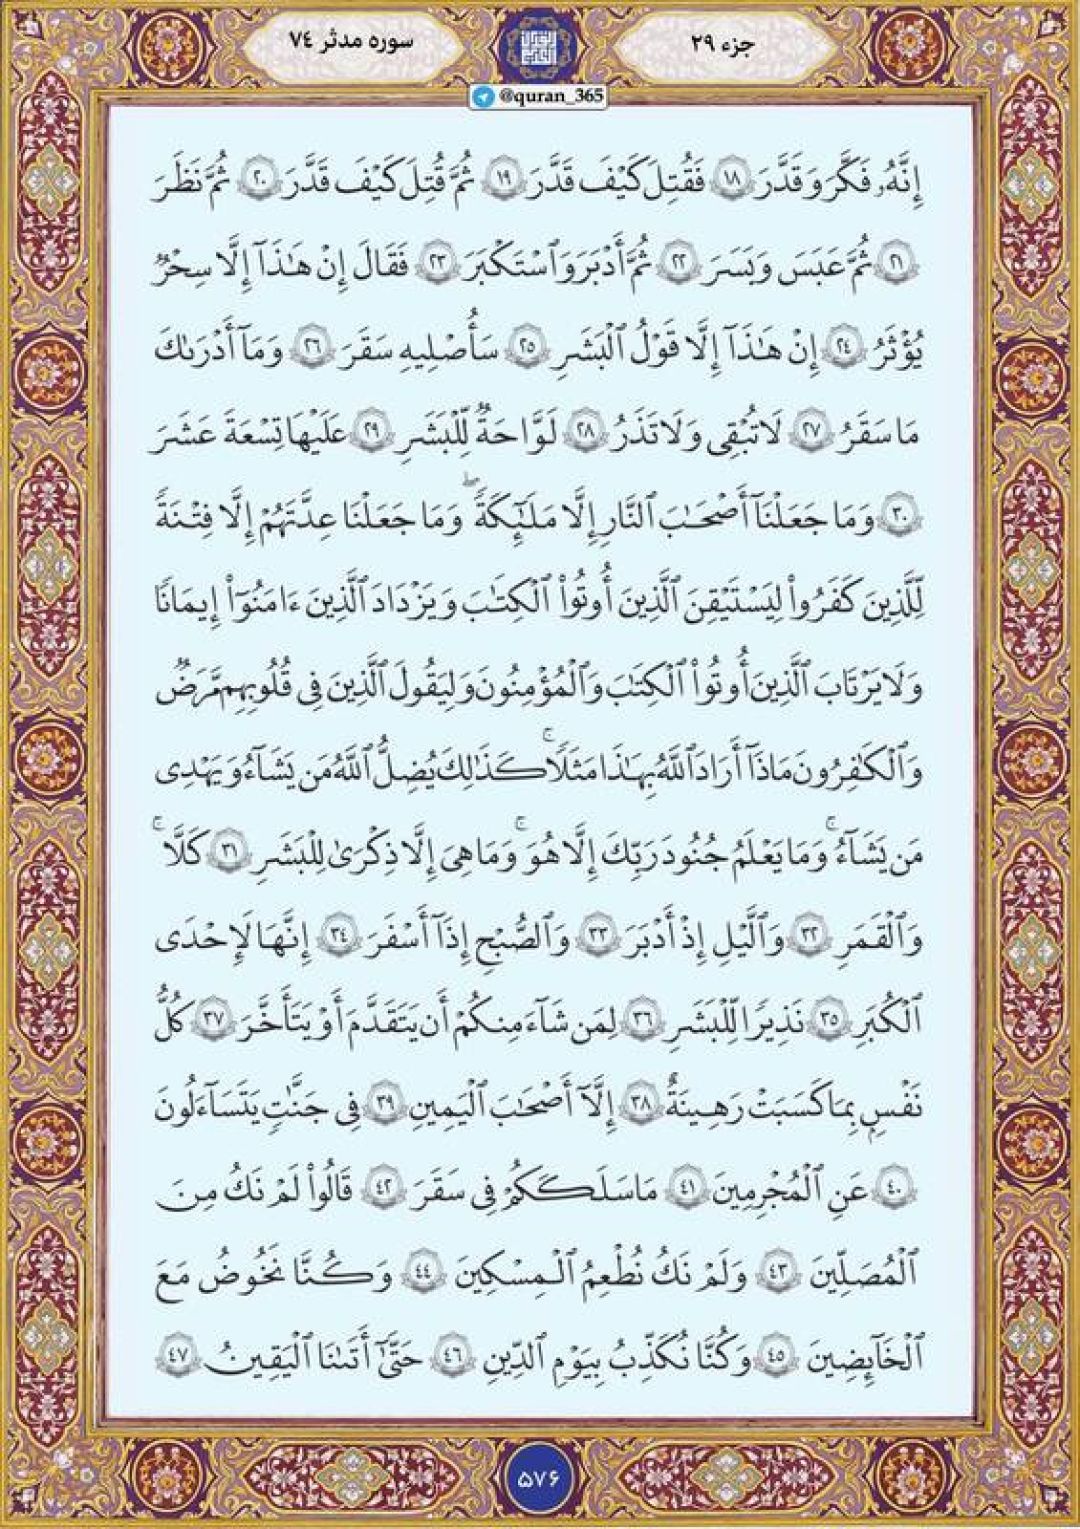 جزء ۲۹
سوره مدثر ۷٤
@quran_365
إِنَّهُۥ فَكَّرَ وَقَدَّرَ ١٨ فَقُتِلَ كَيْفَ قَدَّرَ ١٩ ثُمَّ قُتِلَ كَيْفَ قَدَّرَ ٢٠ ثُمَّ نَظَرَ
٢١ ثُمَّ عَبَسَ وَبَسَرَ ٢٢ ثُمَّ أَدْبَرَ وَٱسْتَكْبَرَ ٢٣ فَقَالَ إِنْ هَٰذَآ إِلَّا سِحْرٌ
يُؤْثَرُ ٢٤ إِنْ هَٰذَآ إِلَّا قَوْلُ ٱلْبَشَرِ ٢٥ سَأُصْلِيهِ سَقَرَ ٢٦ وَمَآ أَدْرَىٰكَ
مَا سَقَرُ ٢٧ لَا تُبْقِى وَلَا تَذَرُ ٢٨ لَوَّاحَةٌ لِّلْبَشَرِ ٢٩ عَلَيْهَا تِسْعَةَ عَشَرَ
٣٠ وَمَا جَعَلْنَآ أَصْحَٰبَ ٱلنَّارِ إِلَّا مَلَٰٓئِكَةً ۖ وَمَا جَعَلْنَا عِدَّتَهُمْ إِلَّا فِتْنَةً
لِّلَّذِينَ كَفَرُوا۟ لِيَسْتَيْقِنَ ٱلَّذِينَ أُوتُوا۟ ٱلْكِتَٰبَ وَيَزْدَادَ ٱلَّذِينَ ءَامَنُوٓا۟ إِيمَٰنًا
وَلَا يَرْتَابَ ٱلَّذِينَ أُوتُوا۟ ٱلْكِتَٰبَ وَٱلْمُؤْمِنُونَ وَلِيَقُولَ ٱلَّذِينَ فِى قُلُوبِهِم مَّرَضٌ
وَٱلْكَٰفِرُونَ مَاذَآ أَرَادَ ٱللَّهُ بِهَٰذَا مَثَلًا ۚ كَذَٰلِكَ يُضِلُّ ٱللَّهُ مَن يَشَآءُ وَيَهْدِى
مَن يَشَآءُ ۚ وَمَا يَعْلَمُ جُنُودَ رَبِّكَ إِلَّا هُوَ ۚ وَمَا هِىَ إِلَّا ذِكْرَىٰ لِلْبَشَرِ ٣١ كَلَّا ۚ
وَٱلْقَمَرِ ٣٢ وَٱلَّيْلِ إِذْ أَدْبَرَ ٣٣ وَٱلصُّبْحِ إِذَآ أَسْفَرَ ٣٤ إِنَّهَا لَإِحْدَى
ٱلْكُبَرِ ٣٥ نَذِيرًا لِّلْبَشَرِ ٣٦ لِمَن شَآءَ مِنكُمْ أَن يَتَقَدَّمَ أَوْ يَتَأَخَّرَ ٣٧ كُلُّ
نَفْسٍۭ بِمَا كَسَبَتْ رَهِينَةٌ ٣٨ إِلَّآ أَصْحَٰبَ ٱلْيَمِينِ ٣٩ فِى جَنَّٰتٍ يَتَسَآءَلُونَ
٤٠ عَنِ ٱلْمُجْرِمِينَ ٤١ مَا سَلَكَكُمْ فِى سَقَرَ ٤٢ قَالُوا۟ لَمْ نَكُ مِنَ
ٱلْمُصَلِّينَ ٤٣ وَلَمْ نَكُ نُطْعِمُ ٱلْمِسْكِينَ ٤٤ وَكُنَّا نَخُوضُ مَعَ
ٱلْخَآئِضِينَ ٤٥ وَكُنَّا نُكَذِّبُ بِيَوْمِ ٱلدِّينِ ٤٦ حَتَّىٰٓ أَتَىٰنَا ٱلْيَقِينُ ٤٧
۵۷۶